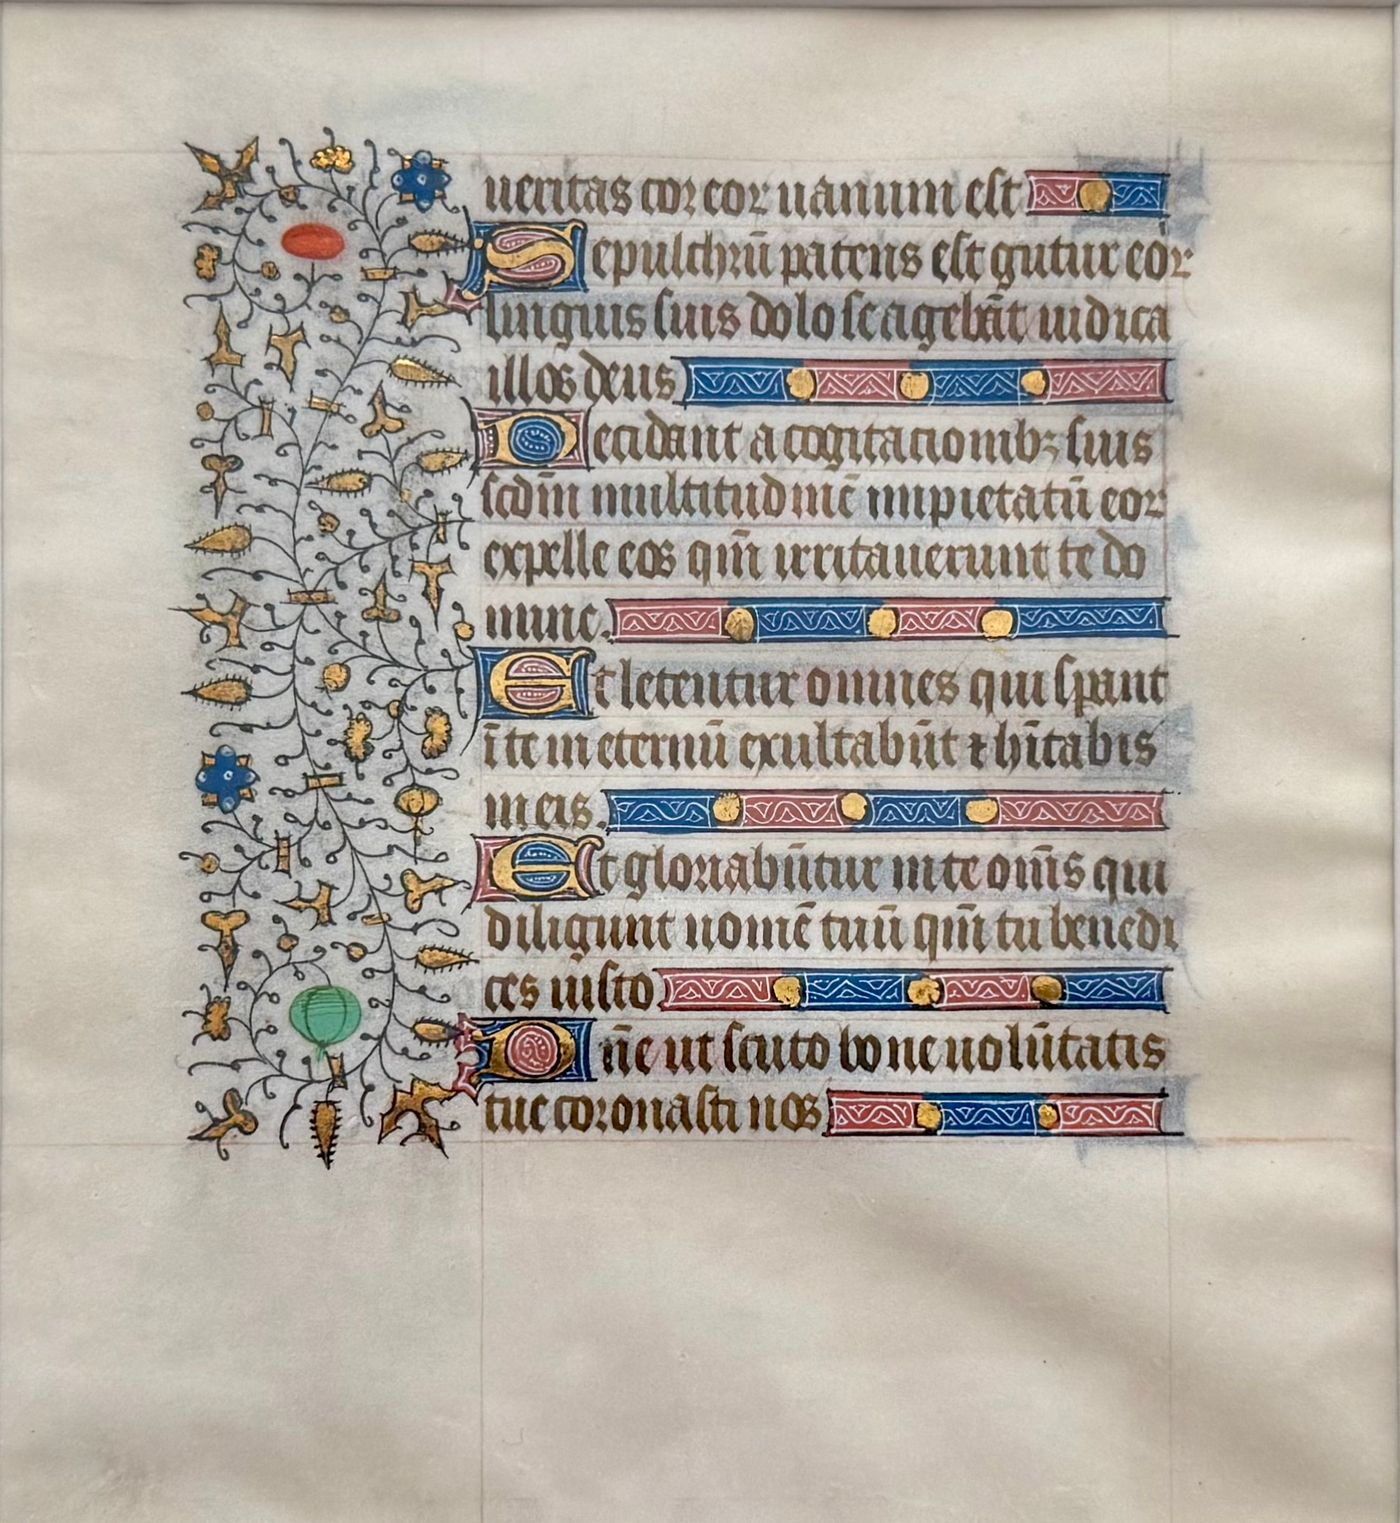 ueritas cor eor uanum est
Sepulchrū patens est gutur eor
linguis suis dolose agebāt iudica
illos deus
Decidant a cogitacionibꝫ suis
scdm̄ multitudinē impietatū eor
expelle eos qm̄ irritauerunt te do
mine.
Et letentur omnes qui sꝑant
ī te in eternū exultabūt ⁊ hītabis
in eis.
Et gloriabūtur in te om̄s qui
diligunt nomē tuū qm̄ tu benedi
ces iusto
Dn̄e ut scuto bone uolūtatis
tue coronasti nos